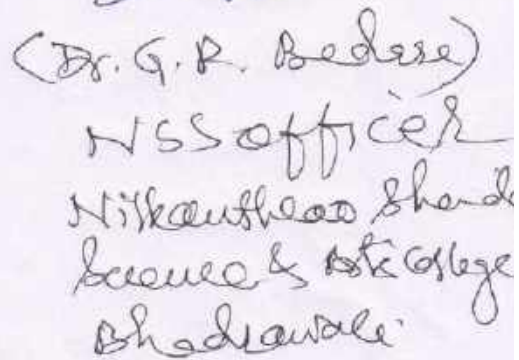 (Dr. G. R. Bedsse)
NSS officer
Nilkanthrao Shind
Science & Arts College
Bhadrawati